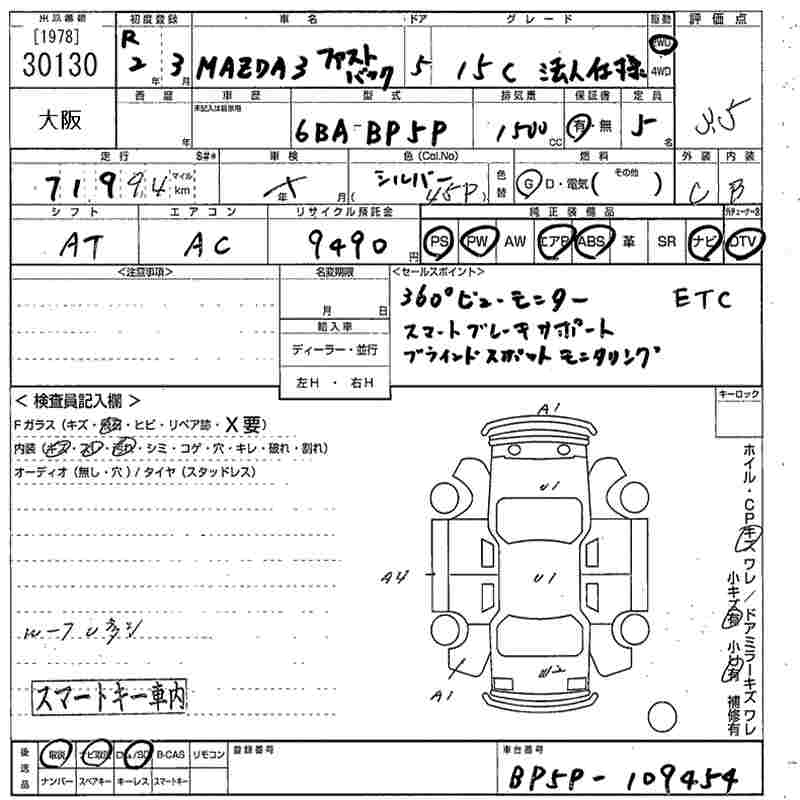 出品番号 初度登録 車名 ドア グレード 駆動 評価点
[1978]
30130
R 2年 3月 MAZDA3 ファストバック 5 15C 法人仕様 2WD 4WD
3.5
大阪
西暦 車歴 型式 排気量 保証書 定員
未記入は自家用
年 6BA-BP5P 1500cc 有・無 5名
走行 S#* 車検 色(Col.No) 燃料 外装 内装
71994 マイル km 年 月( シルバー 45P) 色替 G D・電気( その他 ) C B
シフト エアコン リサイクル預託金 純正装備品
AT AC 9490円 PS PW AW エアB ABS 革 SR ナビ DTV
<注意事項> 名変期限 <セールスポイント>
月 日
輸入車
ディーラー・並行
左H ・ 右H
360°ビューモニター ETC
スマートブレーキサポート
ブラインドスポットモニタリング
< 検査員記入欄 > キーロック
Fガラス(キズ・・ヒビ・リペア跡・X要)
内装(キズ・スレ・・シミ・コゲ・穴・キレ・破れ・割れ)
オーディオ(無し・穴)/タイヤ(スタッドレス)
A1
U1
A4 U1
W2
A1
スマートキー車内
ホイル・CPキズ ワレ/ドアミラーキズ ワレ
小キズ有 小凹有 補修有
後送品 取説 ナビ取説 B-CAS リモコン 登録番号 車台番号
ナンバー スペアキー キーレス スマートキー
BP5P-109454